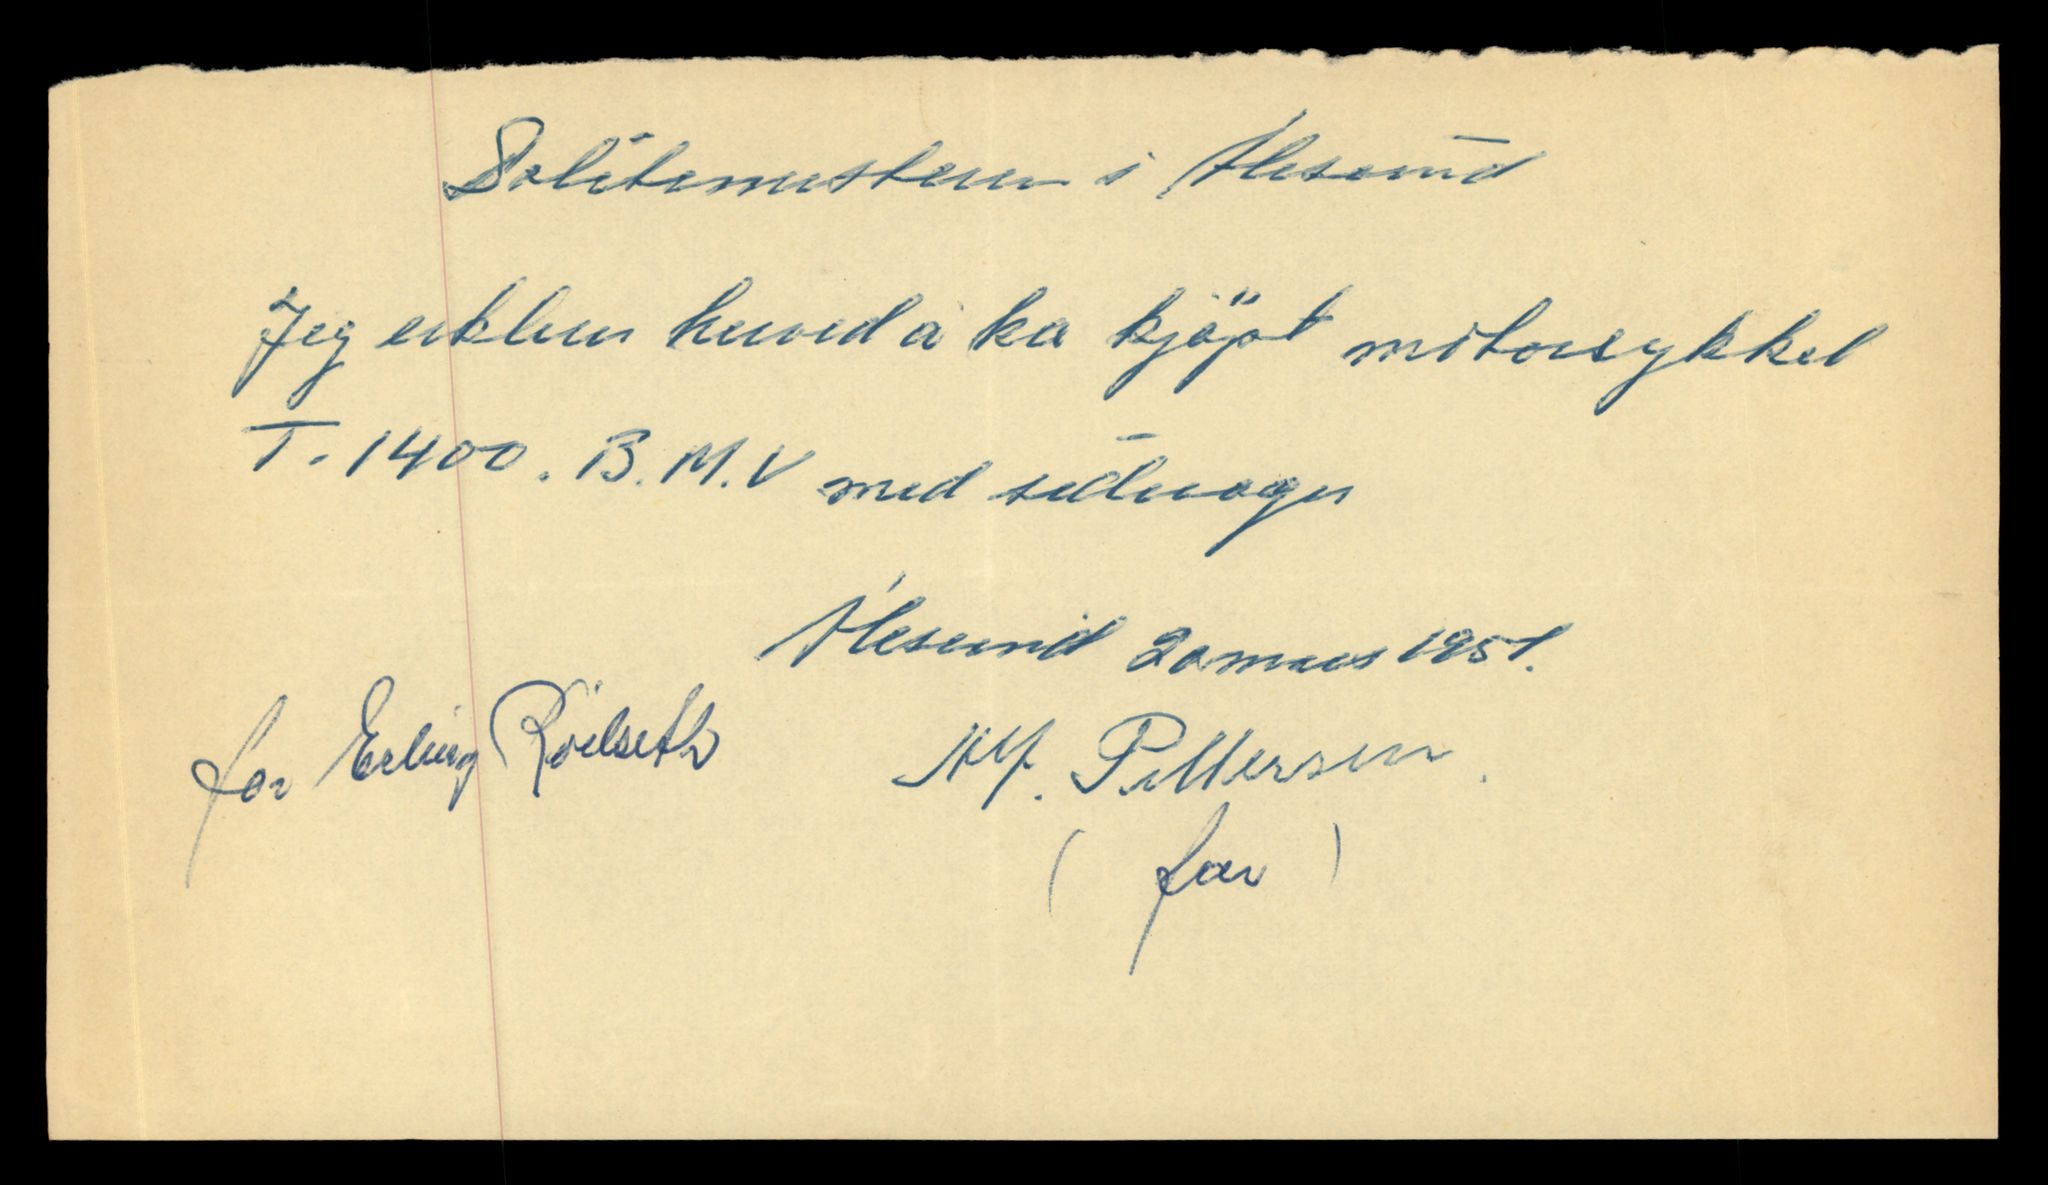 Politimesteren i Ålesund
Jeg erklerer herved å ha kjöpt motorsykkel
T. 1400. B.M.V med sidevogn
Ålesund 20 mars 1951.
for Erling Röelseth
Alf. Pettersen.
( far )